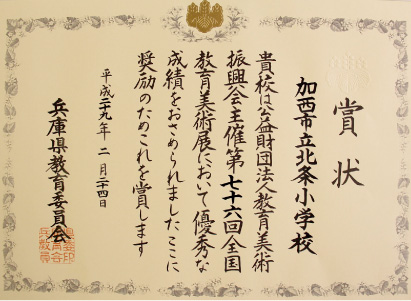 賞状
加西市立北条小学校
貴校は公益財団法人教育美術
振興会主催第七十六回全国
教育美術展において優秀な
成績をおさめられましたここに
奨励のためこれを賞します
平成二十九年二月二十四日
兵庫県教育委員会